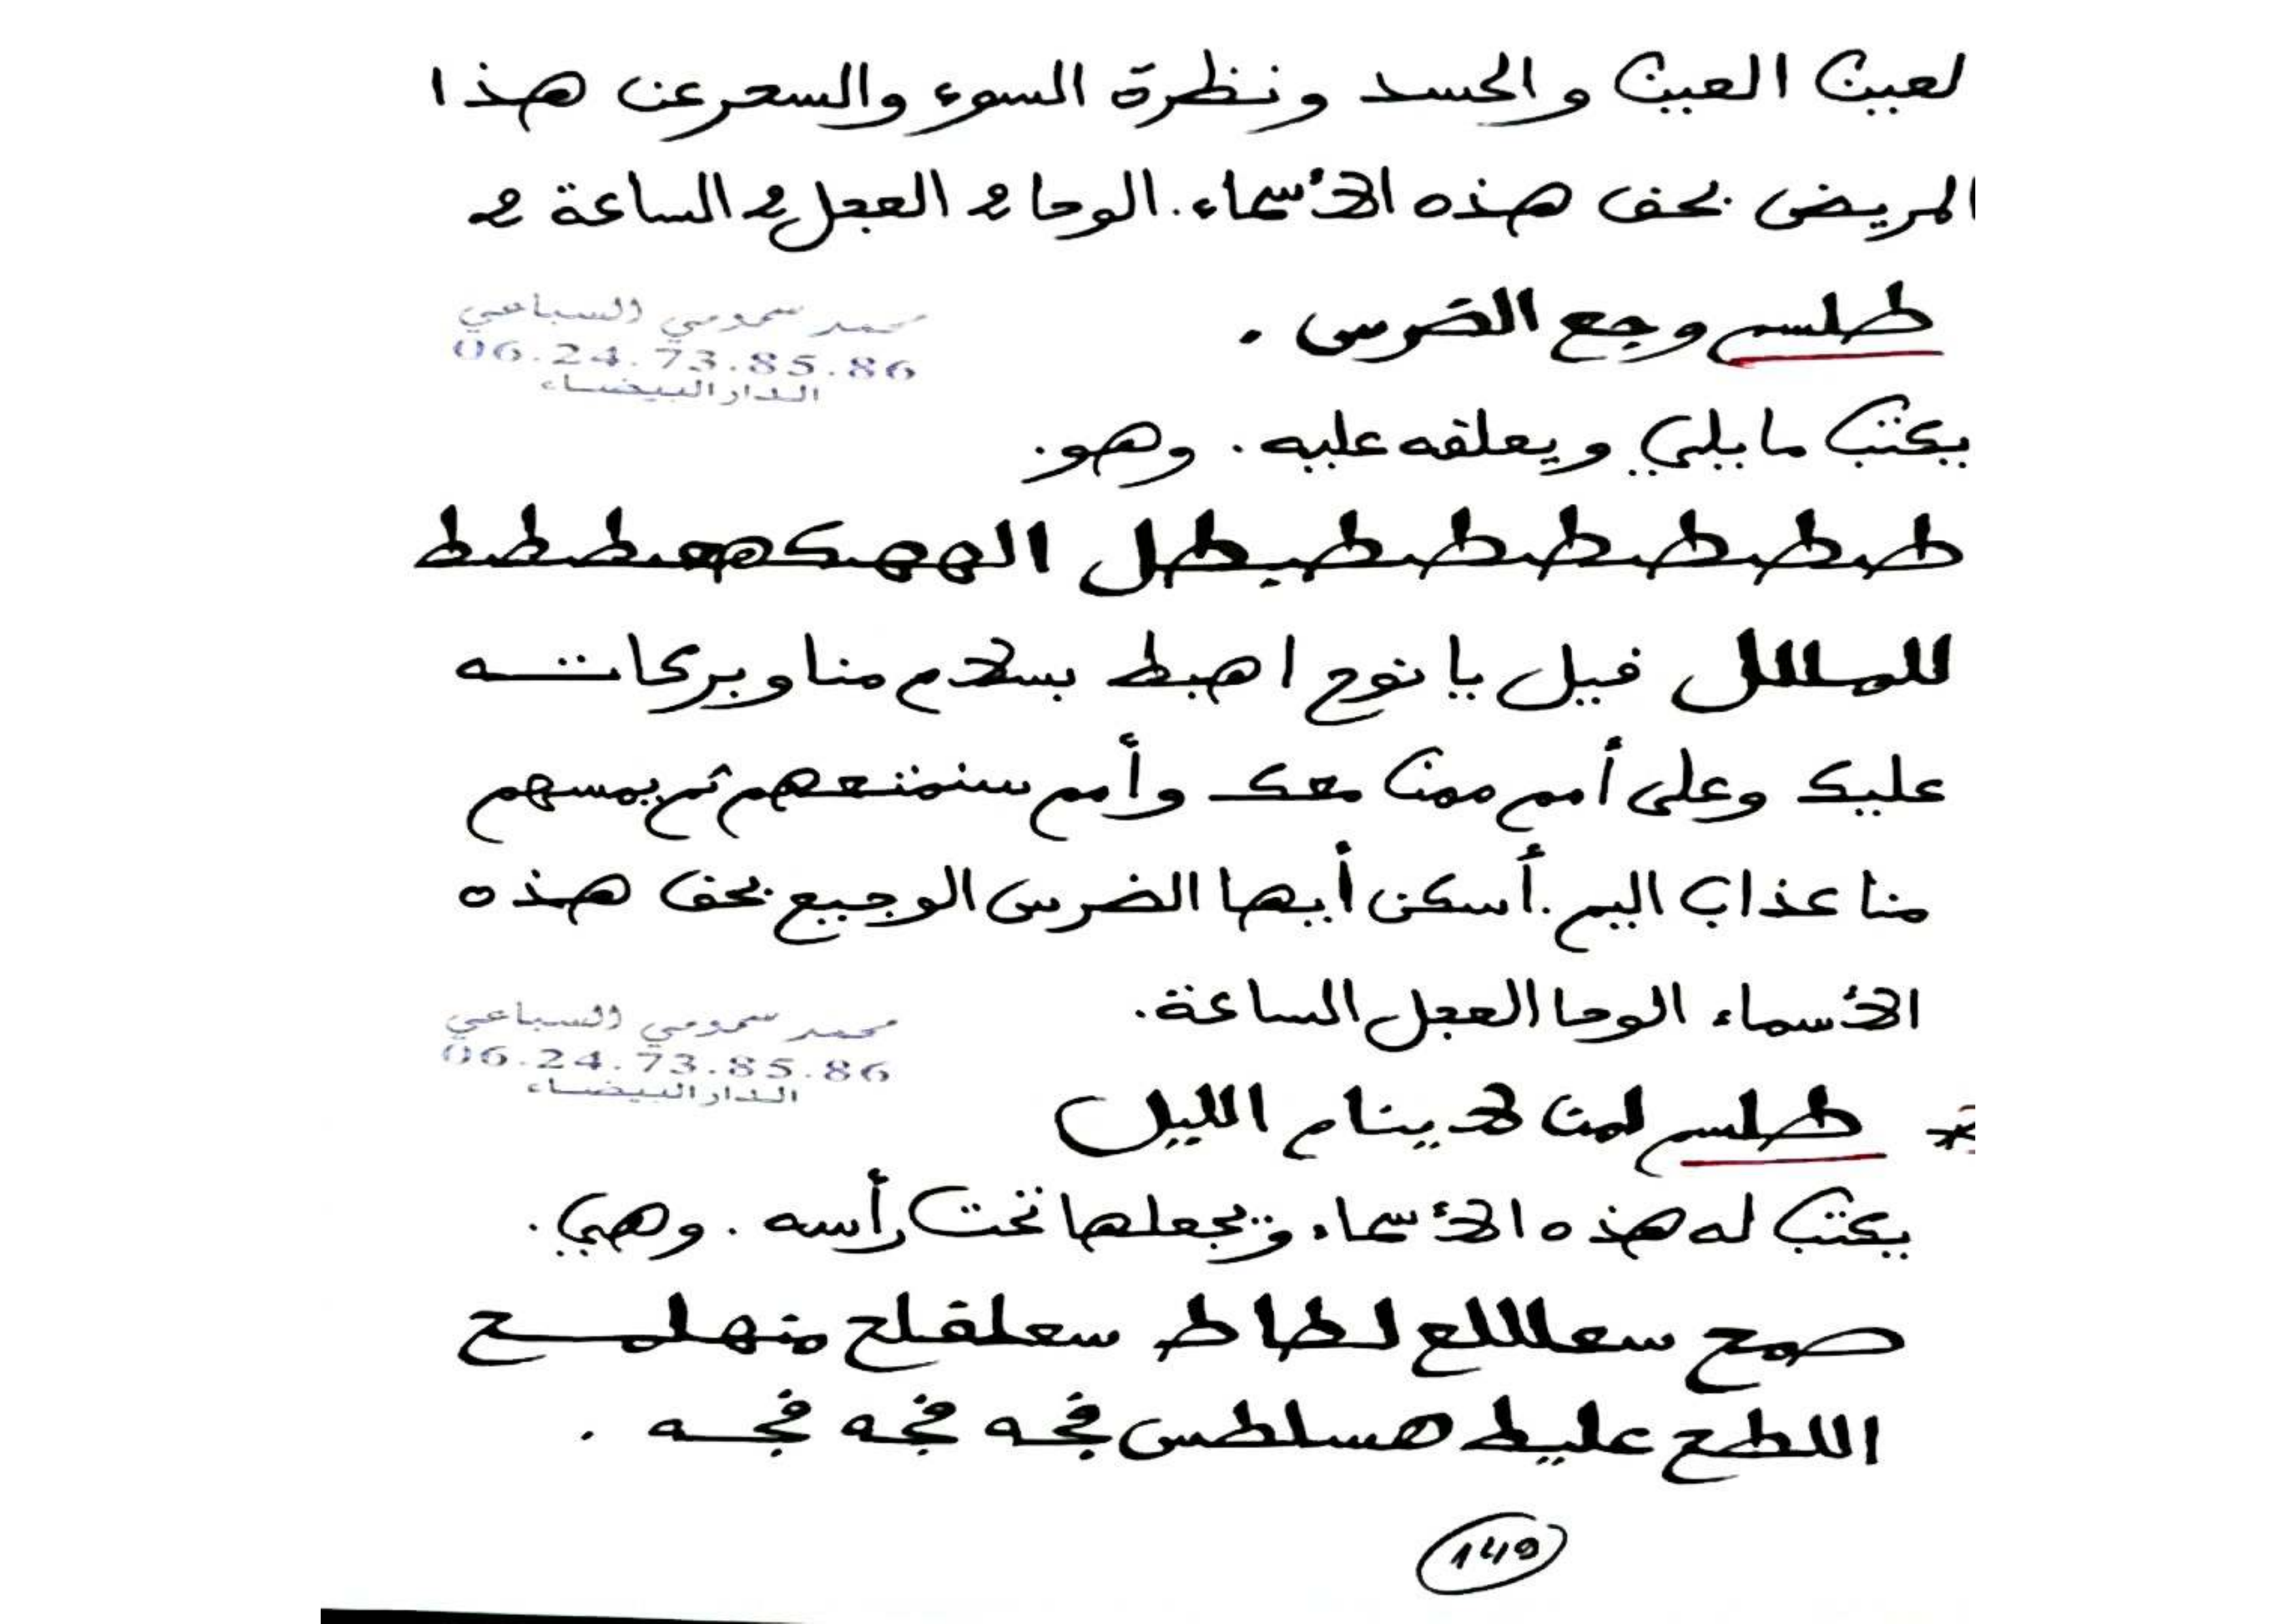 لعين العين والحسد ونظرة السوء والسحر عن هذا
المريض بحق هذه الأسماء. الوحا 2 العجل 2 الساعة 2
محمد سمومي السباعي
06.24.73.85.86
الدار البيضاء
طلسم وجع الضرس .
يكتب ما يلي ويعلقه عليه . وهو .
طططططططبطل الههكهعططط
للمسلل قيل يا نوح اهبط بسلام منا وبركاته
عليك وعلى أمم ممن معك وأمم سنمتعهم ثم يمسهم
منا عذاب اليم . أسكن أيها الضرس الوجيع بحق هذه
الأسماء الوحا العجل الساعة .
محمد سمومي السباعي
06.24.73.85.86
الدار البيضاء
طلسم لمن لا ينام الليل
يكتب له هذه الأسماء ويجعلها تحت رأسه . وهي .
صمح سعاللع لطاط سعلقلح منهلمح
اللطح عليط هسلطس فجه فجه فجه .
149